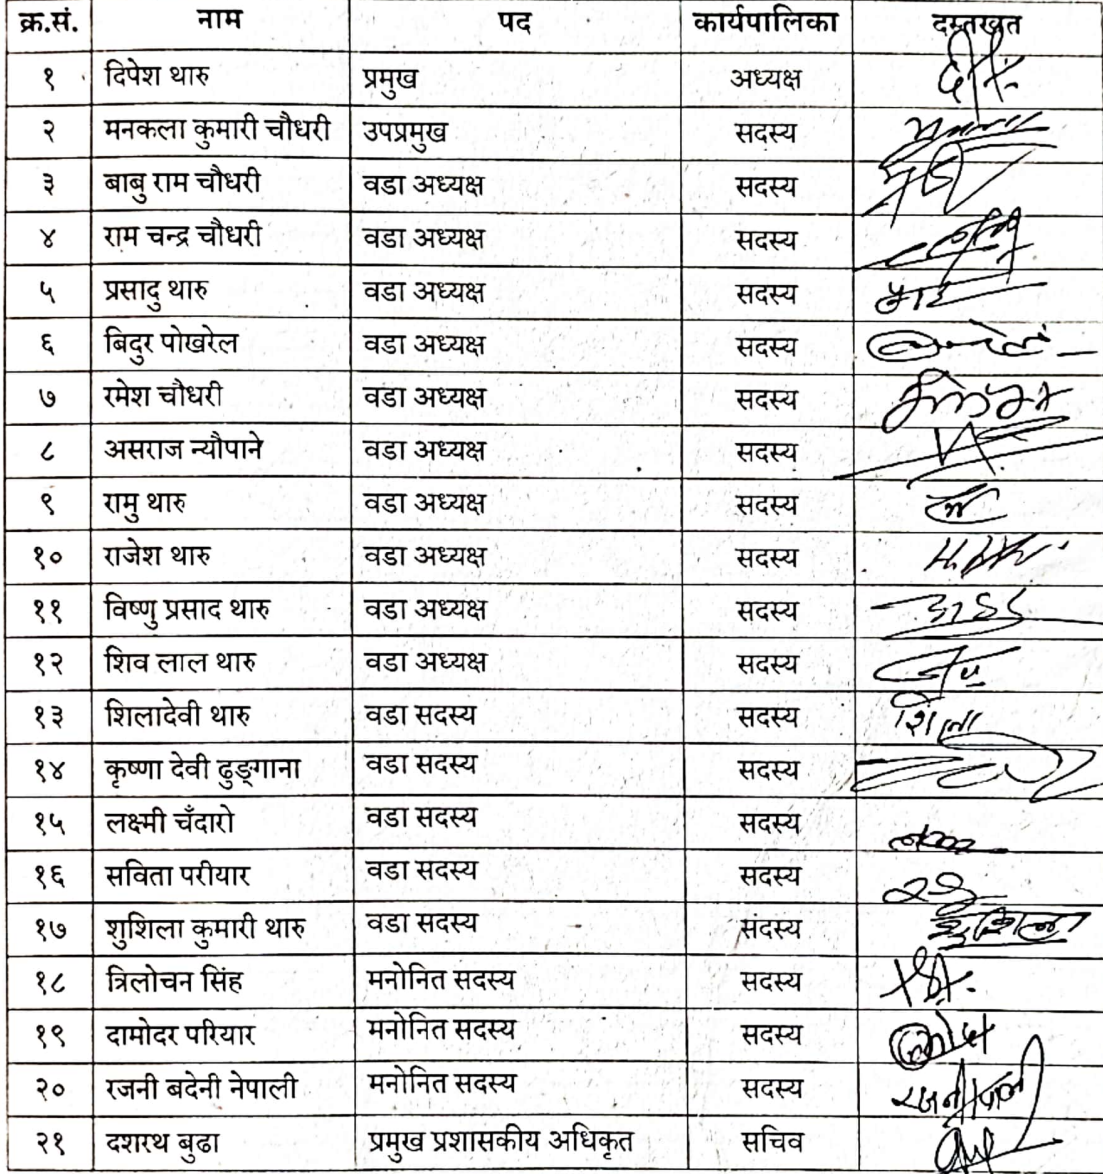 क्र.सं. नाम पद कार्यपालिका दस्तखत
१ दिपेश थारु प्रमुख अध्यक्ष
२ मनकला कुमारी चौधरी उपप्रमुख सदस्य
३ बाबु राम चौधरी वडा अध्यक्ष सदस्य
४ राम चन्द्र चौधरी वडा अध्यक्ष सदस्य
५ प्रसादु थारु वडा अध्यक्ष सदस्य
६ बिदुर पोखरेल वडा अध्यक्ष सदस्य
७ रमेश चौधरी वडा अध्यक्ष सदस्य
८ असराज न्यौपाने वडा अध्यक्ष सदस्य
९ रामु थारु वडा अध्यक्ष सदस्य
१० राजेश थारु वडा अध्यक्ष सदस्य
११ विष्णु प्रसाद थारु वडा अध्यक्ष सदस्य
१२ शिव लाल थारु वडा अध्यक्ष सदस्य
१३ शिलादेवी थारु वडा सदस्य सदस्य शिला
१४ कृष्णा देवी ढुङ्गाना वडा सदस्य सदस्य
१५ लक्ष्मी चँदारो वडा सदस्य सदस्य
१६ सविता परीयार वडा सदस्य सदस्य
१७ शुशिला कुमारी थारु वडा सदस्य सदस्य शुशिला
१८ त्रिलोचन सिंह मनोनित सदस्य सदस्य
१९ दामोदर परियार मनोनित सदस्य सदस्य
२० रजनी बदेनी नेपाली मनोनित सदस्य सदस्य
२१ दशरथ बुढा प्रमुख प्रशासकीय अधिकृत सचिव